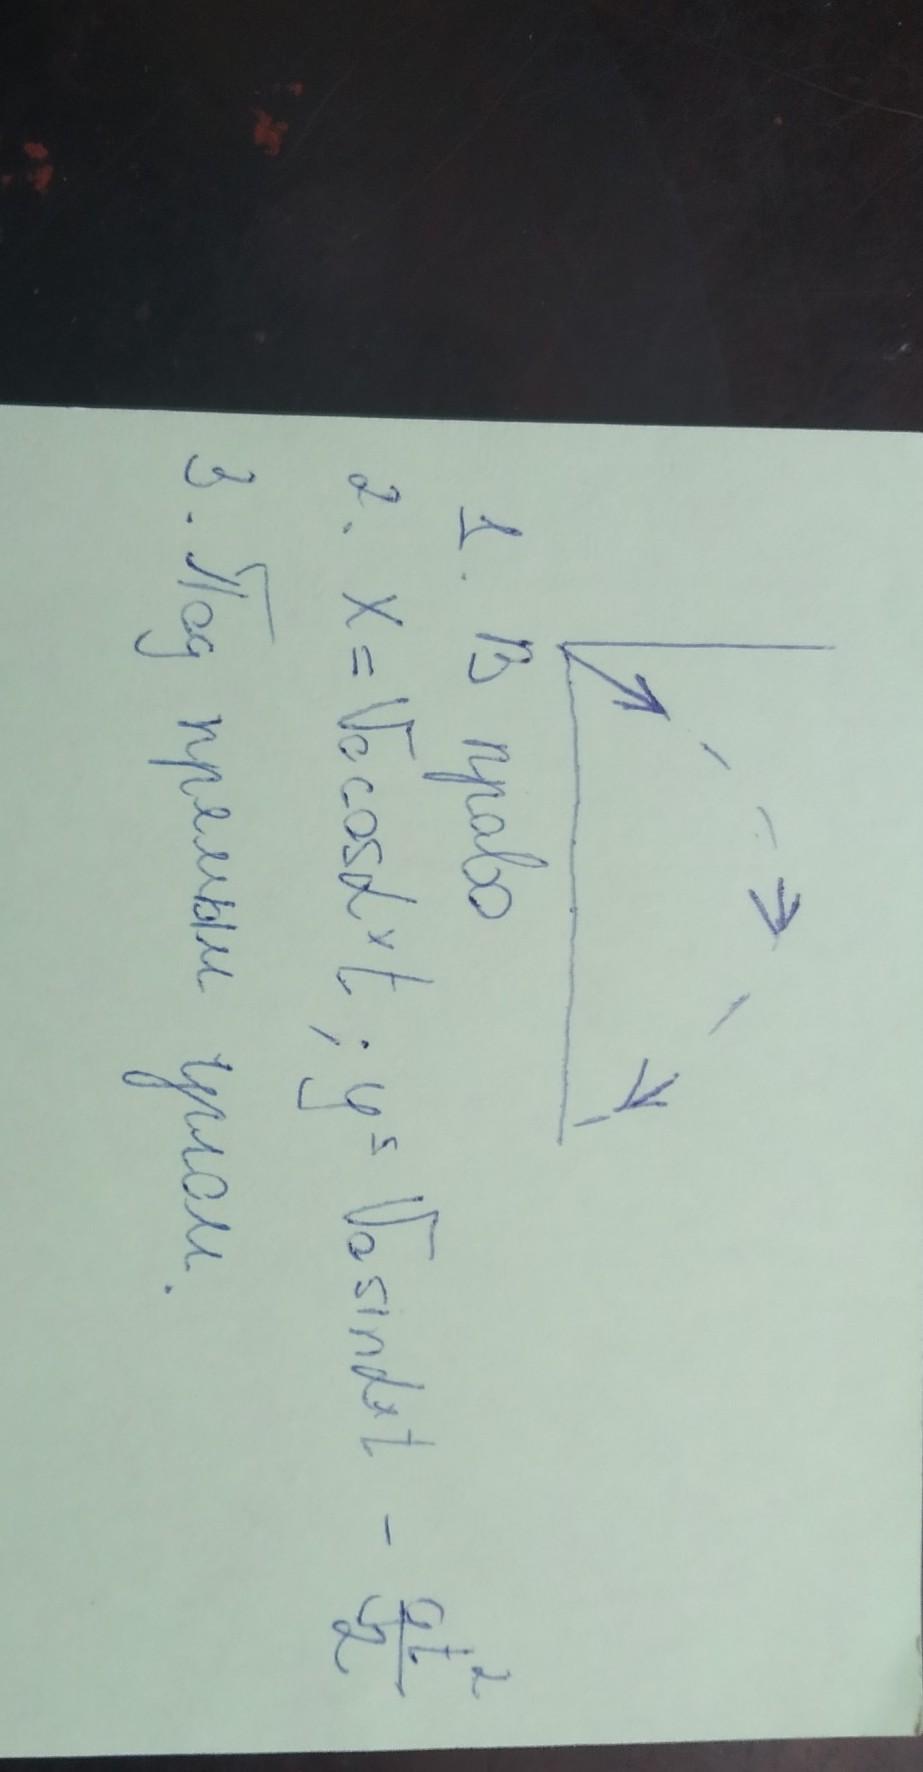 1. В право
2. x = V₀cosα×t ; y = V₀sinα×t - gt²/2
3. Под прямым углом.